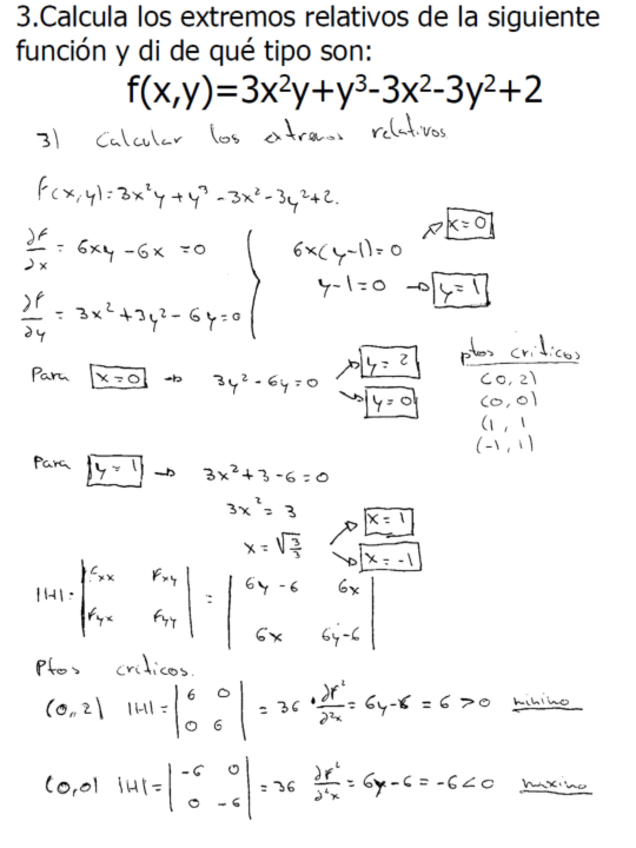 3.Calcula los extremos relativos de la siguiente
función y di de qué tipo son:
f(x,y)=3x²y+y³-3x²-3y²+2
3) Calcular los extremos relativos
f(x,y)=3x²y+y³-3x²-3y²+2.
∂f/∂x = 6xy-6x =0 6x(y-1)=0 ↗ x=0
y-1=0 → y=1
∂f/∂y = 3x²+3y²-6y=0
Para x=0 → 3y²-6y=0 ↗ y=2 ↘ y=0
ptos críticos
(0,2)
(0,0)
(1,1
(-1,1)
Para y=1 → 3x²+3-6=0
3x²=3
x=√3/3 ↗ x=1 ↘ x=-1
|H|= |fxx fxy| = |6y-6 6x|
|fyx fyy| |6x 6y-6|
Ptos críticos.
(0,,2) |H|= |6 0| = 36 · ∂f²/∂²x = 6y-6 = 6 >0 mínimo
|0 6|
(0,0) |H|= |-6 0| = 36 ∂f²/∂²x = 6y-6=-6<0 maximo
|0 -6|